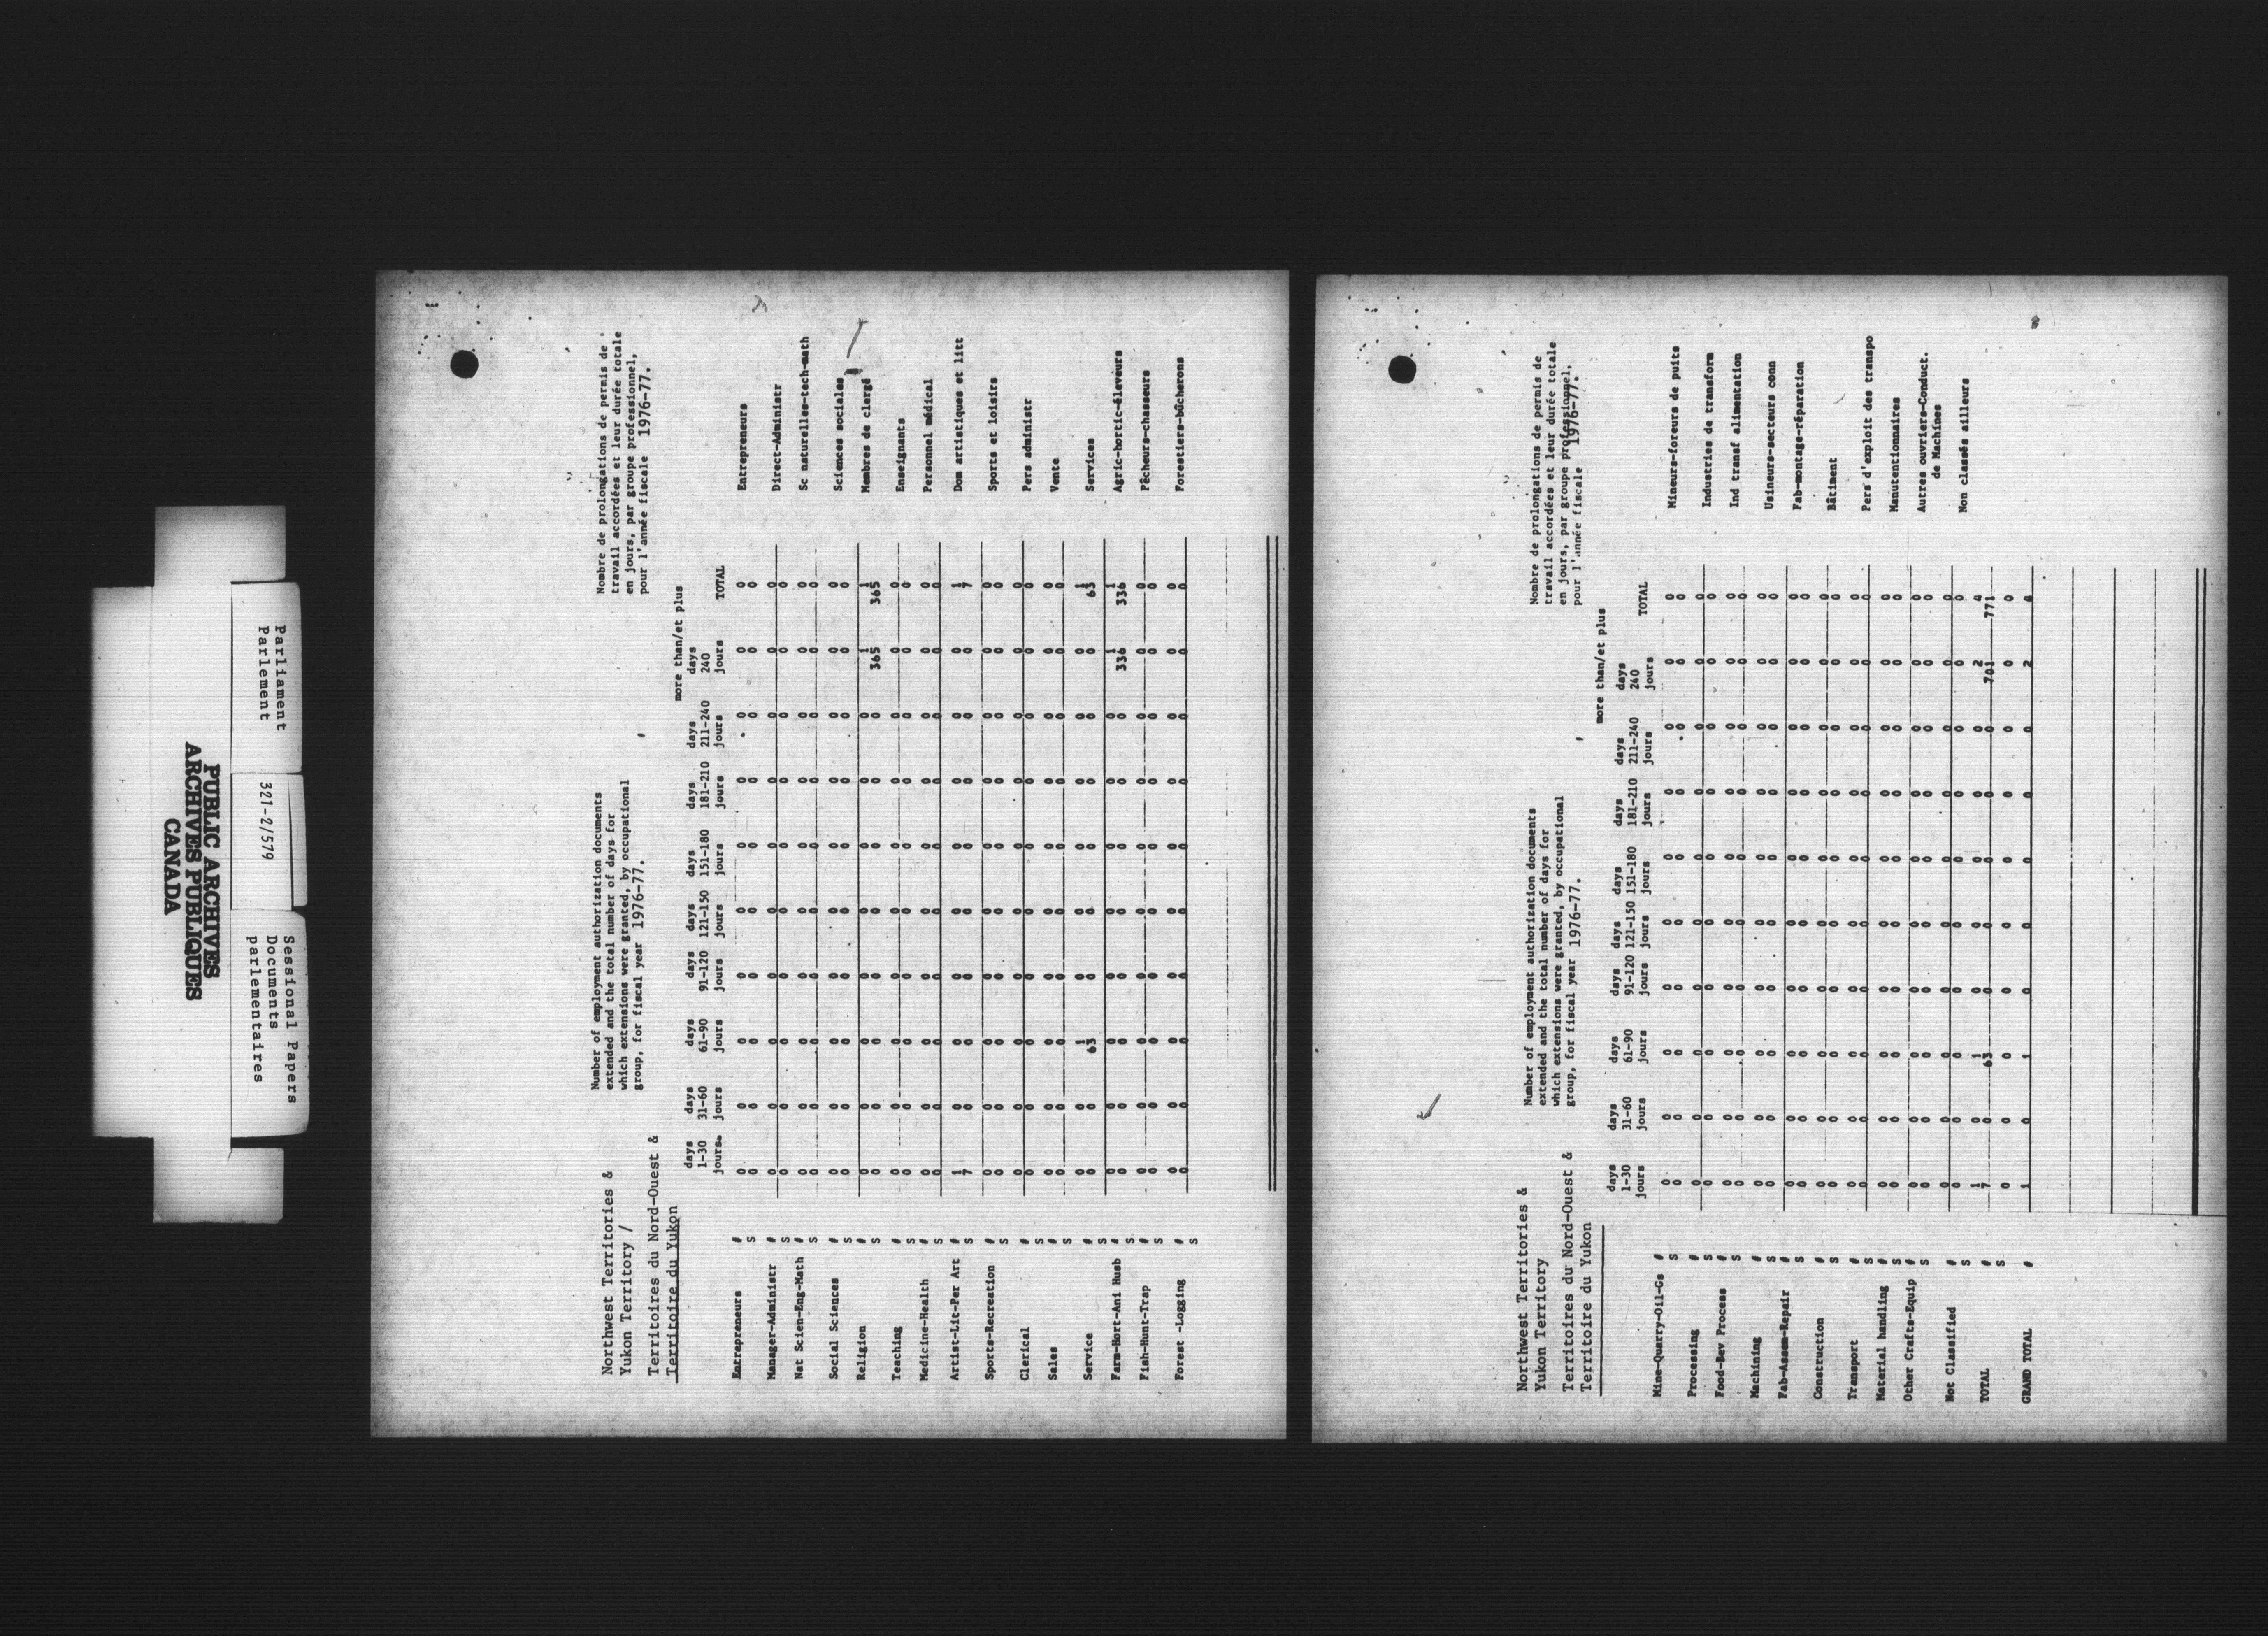 PUBLIC ARCHIVES
ARCHIVES PUBLIQUES
CANADA
Parliament
Parlement
321-2/579
Sessional Papers
Documents
parlementaires
Northwest Territories &
Yukon Territory /
Territoires du Nord-Ouest &
Territoire du Yukon
Number of employment authorization documents
extended and the total number of days for
which extensions were granted, by occupational
group, for fiscal year 1976-77.
Nombre de prolongations de permis de
travail accordées et leur durée totale
en jours, par groupe professionnel,
pour l'année fiscale 1976-77.
more than/et plus
days days days days days days days days days
1-30 31-60 61-90 91-120 121-150 151-180 181-210 211-240 240
jours jours jours jours jours jours jours jours jours TOTAL
Entrepreneurs # 0 0 0 0 0 0 0 0 0 0 Entrepreneurs
S 0 0 0 0 0 0 0 0 0 0
Manager-Administr # 0 0 0 0 0 0 0 0 0 0 Direct-Administr
S 0 0 0 0 0 0 0 0 0 0
Nat Scien-Eng-Math # 0 0 0 0 0 0 0 0 0 0 Sc naturelles-tech-math
S 0 0 0 0 0 0 0 0 0 0
Social Sciences # 0 0 0 0 0 0 0 0 0 0 Sciences sociales
S 0 0 0 0 0 0 0 0 0 0
Religion # 0 0 0 0 0 0 0 0 1 1 Membres de clergé
S 0 0 0 0 0 0 0 0 365 365
Teaching # 0 0 0 0 0 0 0 0 0 0 Enseignants
S 0 0 0 0 0 0 0 0 0 0
Medicine-Health # 0 0 0 0 0 0 0 0 0 0 Personnel médical
S 0 0 0 0 0 0 0 0 0 0
Artist-Lit-Per Art # 1 0 0 0 0 0 0 0 0 1 Dom artistiques et litt
S 7 0 0 0 0 0 0 0 0 7
Sports-Recreation # 0 0 0 0 0 0 0 0 0 0 Sports et loisirs
S 0 0 0 0 0 0 0 0 0 0
Clerical # 0 0 0 0 0 0 0 0 0 0 Pers administr
S 0 0 0 0 0 0 0 0 0 0
Sales # 0 0 0 0 0 0 0 0 0 0 Vente
S 0 0 0 0 0 0 0 0 0 0
Service # 0 0 1 0 0 0 0 0 0 1 Services
S 0 0 63 0 0 0 0 0 0 63
Farm-Hort-Ani Husb # 0 0 0 0 0 0 0 0 1 1 Agric-hortic-éleveurs
S 0 0 0 0 0 0 0 0 336 336
Fish-Hunt-Trap # 0 0 0 0 0 0 0 0 0 0 Pêcheurs-chasseurs
S 0 0 0 0 0 0 0 0 0 0
Forest -Logging # 0 0 0 0 0 0 0 0 0 0 Forestiers-bûcherons
S 0 0 0 0 0 0 0 0 0 0
Northwest Territories &
Yukon Territory
Territoires du Nord-Ouest &
Territoire du Yukon
Number of employment authorization documents
extended and the total number of days for
which extensions were granted, by occupational
group, for fiscal year 1976-77.
Nombre de prolongations de permis de
travail accordées et leur durée totale
en jours, par groupe professionnel,
pour l'année fiscale 1976-77.
more than/et plus
days days days days days days days days days
1-30 31-60 61-90 91-120 121-150 151-180 181-210 211-240 240
jours jours jours jours jours jours jours jours jours TOTAL
Mine-Quarry-Oil-Gs # 0 0 0 0 0 0 0 0 0 0 Mineurs-foreurs de puits
S 0 0 0 0 0 0 0 0 0 0
Processing # 0 0 0 0 0 0 0 0 0 0 Industries de transform
S 0 0 0 0 0 0 0 0 0 0
Food-Bev Process # 0 0 0 0 0 0 0 0 0 0 Ind transf alimentation
S 0 0 0 0 0 0 0 0 0 0
Machining # 0 0 0 0 0 0 0 0 0 0 Usineurs-secteurs conn
S 0 0 0 0 0 0 0 0 0 0
Fab-Assem-Repair # 0 0 0 0 0 0 0 0 0 0 Fab-montage-réparation
S 0 0 0 0 0 0 0 0 0 0
Construction # 0 0 0 0 0 0 0 0 0 0 Bâtiment
S 0 0 0 0 0 0 0 0 0 0
Transport # 0 0 0 0 0 0 0 0 0 0 Pers d'exploit des transpo
S 0 0 0 0 0 0 0 0 0 0
Material handling # 0 0 0 0 0 0 0 0 0 0 Manutentionnaires
S 0 0 0 0 0 0 0 0 0 0
Other Crafts-Equip # 0 0 0 0 0 0 0 0 0 0 Autres ouvriers-Conduct.
S 0 0 0 0 0 0 0 0 0 0 de Machines
Not Classified # 0 0 0 0 0 0 0 0 0 0 Non classés ailleurs
S 0 0 0 0 0 0 0 0 0 0
TOTAL # 1 0 1 0 0 0 0 0 2 4
S 7 0 63 0 0 0 0 0 701 771
0 0 0 0 0 0 0 0 0 0
GRAND TOTAL # 1 0 1 0 0 0 0 0 2 4